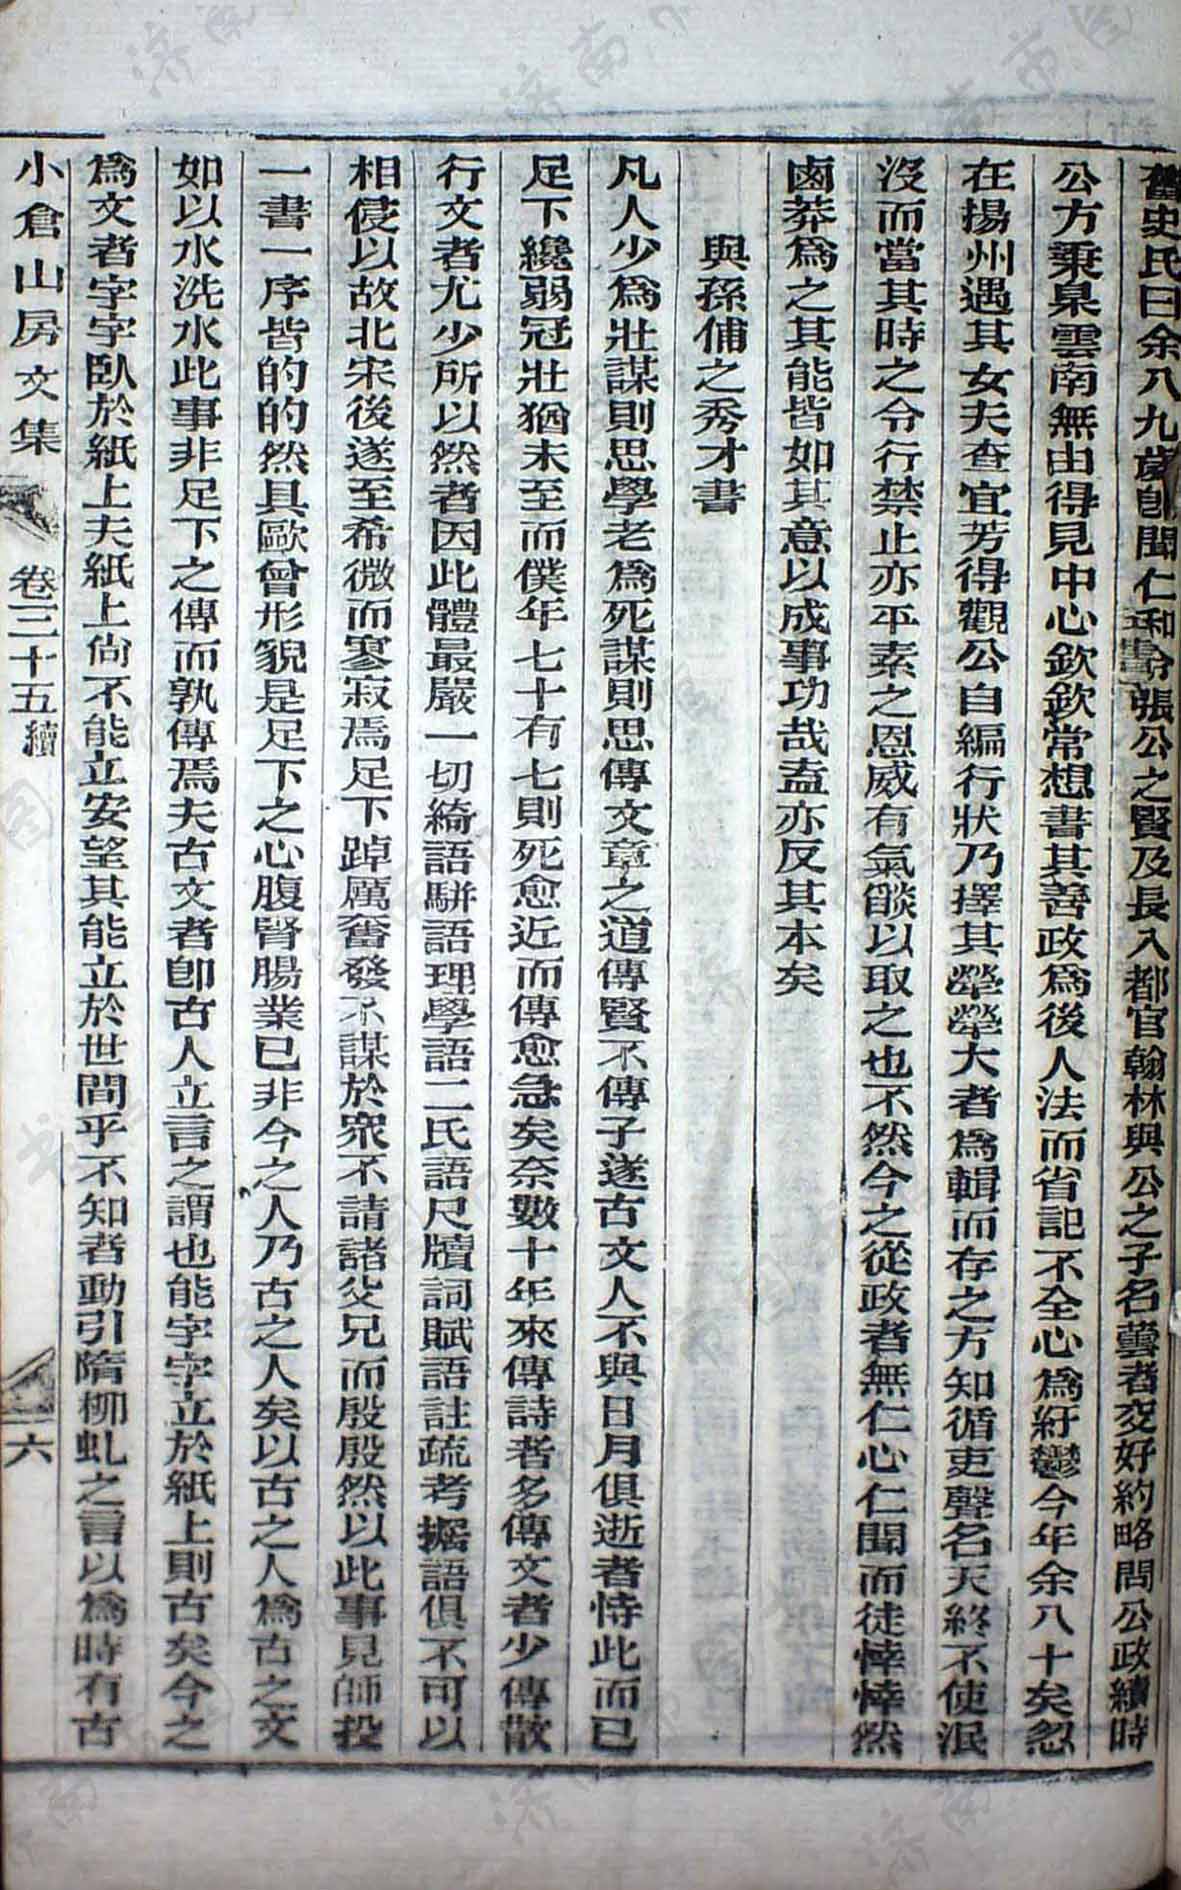 舊史氏曰余八九歲卽聞仁和令張公之賢及長入都官翰林與公之子名蕓者交好約略問公政績時
公方秉臬雲南無由得見中心欽欽常想書其善政爲後人法而省記不全心爲紆鬱今年余八十矣忽
在揚州遇其女夫查宜芳得觀公自編行狀乃擇其犖犖大者爲輯而存之方知循吏聲名天終不使泯
沒而當其時之令行禁止亦平素之恩威有氣燄以取之也不然今之從政者無仁心仁聞而徒悻悻然
鹵莽爲之其能皆如其意以成事功哉盍亦反其本矣
與孫俌之秀才書
凡人少爲壯謀則思學老爲死謀則思傳文章之道傳賢不傳子遂古文人不與日月俱逝者恃此而已
足下纔弱冠壯猶未至而僕年七十有七則死愈近而傳愈急矣奈數十年來傳詩者多傳文者少傳散
行文者尤少所以然者因此體最嚴一切綺語駢語理學語二氏語尺牘詞賦語註疏考據語俱不可以
相侵以故北宋後遂至希微而寥寂焉足下踔厲奮發不謀於衆不請諸父兄而殷殷然以此事見師投
一書一序皆的的然具歐曾形貌是足下之心腹腎腸業已非今之人乃古之人矣以古之人爲古之文
如以水洗水此事非足下之傳而孰傳焉夫古文者卽古人立言之謂也能字字立於紙上則古矣今之
爲文者字字臥於紙上夫紙上尙不能立安望其能立於世間乎不知者動引隋柳虬之言以爲時有古
小倉山房文集 卷三十五續 六